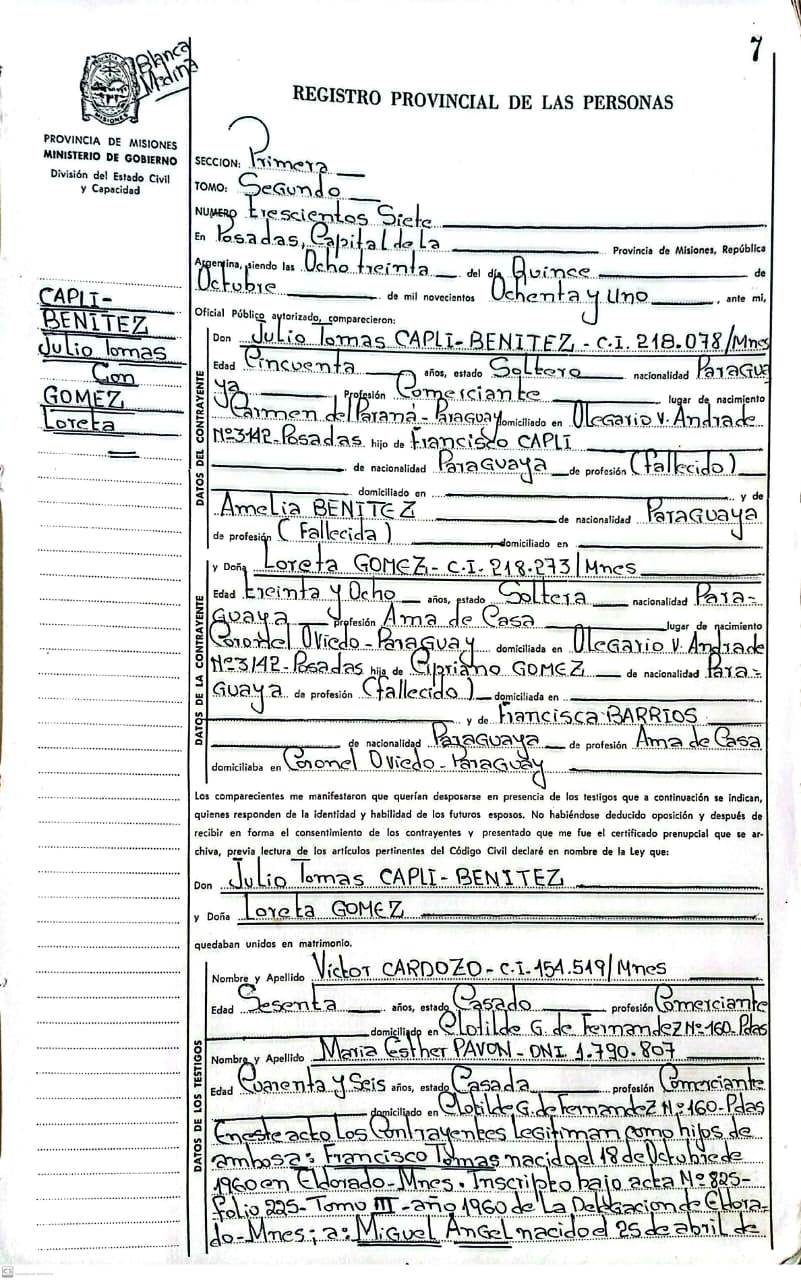 7
Blanca
Madina
REGISTRO PROVINCIAL DE LAS PERSONAS
PROVINCIA DE MISIONES
MINISTERIO DE GOBIERNO
División del Estado Civil
y Capacidad
SECCION: Primera
TOMO: Segundo
NUMERO trescientos Siete
En Posadas, Capital de la Provincia de Misiones, República
Argentina, siendo las Ocho treinta del día Quince de
Octubre de mil novecientos Ochenta y Uno, ante mi,
Oficial Público autorizado, comparecieron:
CAPLI-
BENITEZ
Julio Tomas
Con
GOMEZ
Loreta
DATOS DEL CONTRAYENTE
Don Julio Tomas CAPLI-BENITEZ - C.I. 218.078/Mnes
Edad Cincuenta años, estado Soltero nacionalidad Paragua
ya Profesión Comerciante lugar de nacimiento
Carmen del Paraná - Paraguay domiciliado en Olegario V. Andrade
Nº3142-Posadas hijo de Francisco CAPLI
de nacionalidad Paraguaya de profesión (fallecido)
domiciliado en y de
Amelia BENITEZ de nacionalidad Paraguaya
de profesión (Fallecida) domiciliado en
DATOS DE LA CONTRAYENTE
y Doña Loreta GOMEZ - C.I. 218.273/Mnes
Edad treinta y Ocho años, estado Soltera nacionalidad Para-
guaya profesión Ama de Casa lugar de nacimiento
Coronel Oviedo-Paraguay domiciliada en Olegario V. Andrade
Nº3142-Posadas hija de Cipriano GOMEZ de nacionalidad Para-
guaya de profesión (fallecido) domiciliada en
y de Francisca BARRIOS
de nacionalidad Paraguaya de profesión Ama de Casa
domiciliaba en Coronel Oviedo-Paraguay
Los comparecientes me manifestaron que querían desposarse en presencia de los testigos que a continuación se indican,
quienes responden de la identidad y habilidad de los futuros esposos. No habiéndose deducido oposición y después de
recibir en forma el consentimiento de los contrayentes y presentado que me fue el certificado prenupcial que se ar-
chiva, previa lectura de los artículos pertinentes del Código Civil declaré en nombre de la Ley que:
Don Julio Tomas CAPLI-BENITEZ
y Doña Loreta GOMEZ
quedaban unidos en matrimonio.
DATOS DE LOS TESTIGOS
Nombre y Apellido Victor CARDOZO - C.I. 154.519/Mnes
Edad Sesenta años, estado Casado profesión Comerciante
domiciliado en Clotilde G. de Fernandez Nº160-Pdas
Nombre y Apellido Maria Esther PAVON - DNI 1.790.807
Edad Cuarenta y Seis años, estado Casada profesión Comerciante
domiciliado en Clotilde G. de Fernandez Nº160-Pdas
En este acto Los Contrayentes Legitiman como hijos de
ambos a: Francisco Tomas nacido el 18 de Octubre de
1960 en Eldorado-Mnes. Inscripto bajo acta Nº825-
folio 225-Tomo III-año 1960 de La Delegacion de Eldora-
do-Mnes; a: Miguel Angel nacido el 25 de abril de